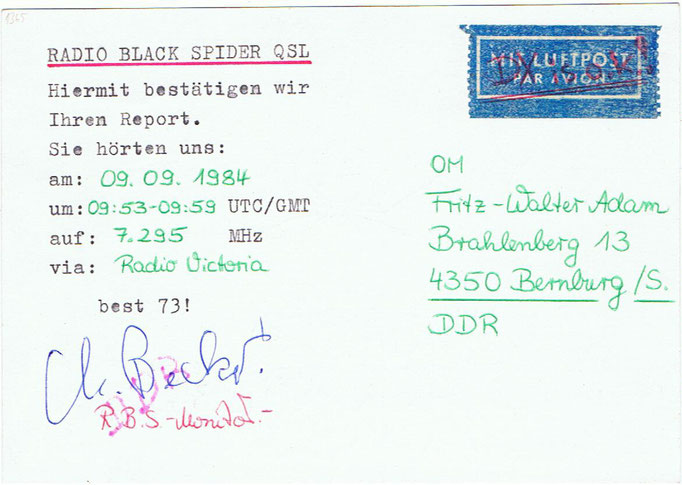 1365
RADIO BLACK SPIDER QSL
Hiermit bestätigen wir
Ihren Report.
Sie hörten uns:
am: 09.09.1984
um: 09:53-09:59 UTC/GMT
auf: 7.295 MHz
via: Radio Victoria
best 73!
R.B.S.-Monitor.-
MIT LUFTPOST
PAR AVION
OM
Fritz-Walter Adam
Brahlenberg 13
4350 Bernburg/S.
DDR